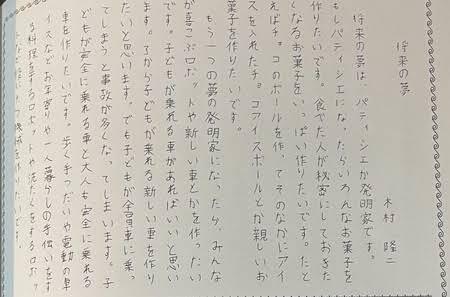 将来の夢
木村 隆二
将来の夢は、パティシエか発明家です。
もしパティシエになったらいろんなお菓子を
作りたいです。食べた人が秘密にしておきた
くなるお菓子をいっぱい作りたいです。たと
えばチョコのボールを作ってそのなかにアイ
スを入れたチョコアイスボールとか新しいお
菓子を作りたいです。
もう一つの夢の発明家になったら、みんな
が喜こぶロボットや新しい車とかを作ったい
です。子どもが乗れる車があればいいと思い
ます。だから子どもが乗れる新しい車を作り
たいと思います。でも子どもが全員車に乗っ
てしまうと事故が多くなってしまいます。子
どもが安全に乗れる車と大人も安全に乗れる
車を作りたいです。歩く手つだいや電動の車
イスなどお年寄りや一人暮らしの手伝いをす
る料理をするロボットや洗たくをするロボッ